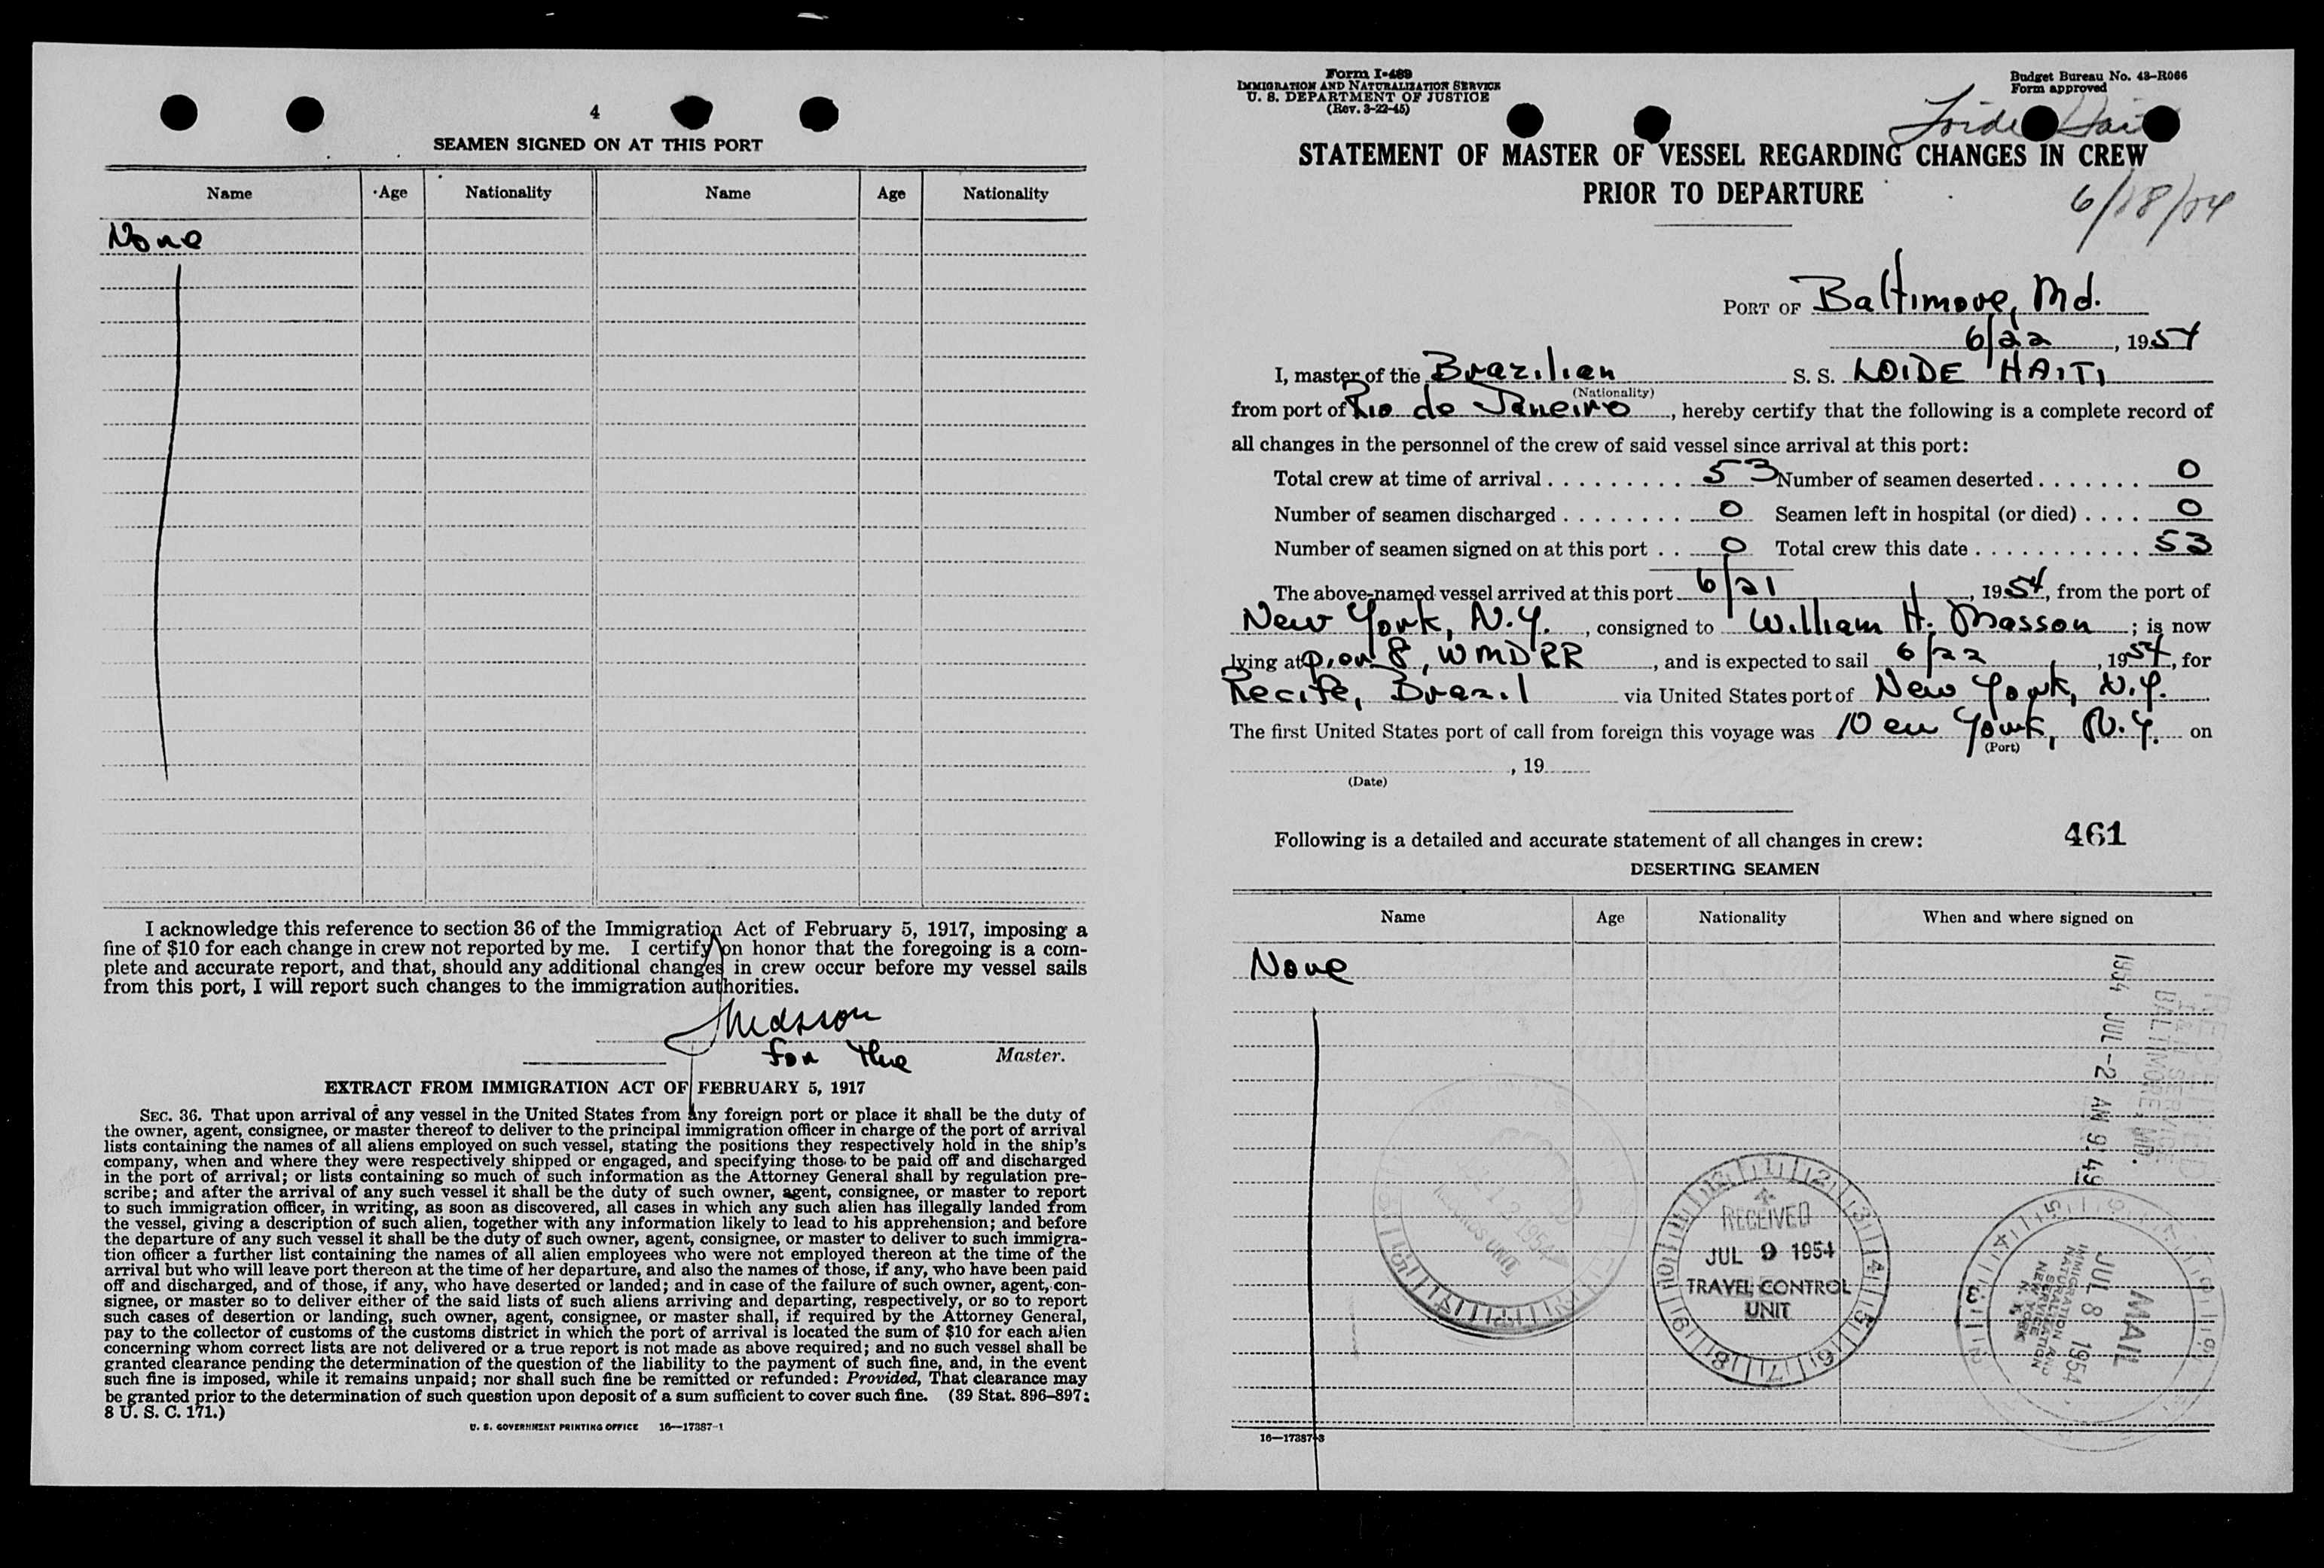 4
SEAMEN SIGNED ON AT THIS PORT
Name Age Nationality Name Age Nationality
None
I acknowledge this reference to section 36 of the Immigration Act of February 5, 1917, imposing a
fine of $10 for each change in crew not reported by me. I certify on honor that the foregoing is a com-
plete and accurate report, and that, should any additional changes in crew occur before my vessel sails
from this port, I will report such changes to the immigration authorities.
Masson
for the Master.
EXTRACT FROM IMMIGRATION ACT OF FEBRUARY 5, 1917
SEC. 36. That upon arrival of any vessel in the United States from any foreign port or place it shall be the duty of
the owner, agent, consignee, or master thereof to deliver to the principal immigration officer in charge of the port of arrival
lists containing the names of all aliens employed on such vessel, stating the positions they respectively hold in the ship's
company, when and where they were respectively shipped or engaged, and specifying those to be paid off and discharged
in the port of arrival; or lists containing so much of such information as the Attorney General shall by regulation pre-
scribe; and after the arrival of any such vessel it shall be the duty of such owner, agent, consignee, or master to report
to such immigration officer, in writing, as soon as discovered, all cases in which any such alien has illegally landed from
the vessel, giving a description of such alien, together with any information likely to lead to his apprehension; and before
the departure of any such vessel it shall be the duty of such owner, agent, consignee, or master to deliver to such immigra-
tion officer a further list containing the names of all alien employees who were not employed thereon at the time of the
arrival but who will leave port thereon at the time of her departure, and also the names of those, if any, who have been paid
off and discharged, and of those, if any, who have deserted or landed; and in case of the failure of such owner, agent, con-
signee, or master so to deliver either of the said lists of such aliens arriving and departing, respectively, or so to report
such cases of desertion or landing, such owner, agent, consignee, or master shall, if required by the Attorney General,
pay to the collector of customs of the customs district in which the port of arrival is located the sum of $10 for each alien
concerning whom correct lists are not delivered or a true report is not made as above required; and no such vessel shall be
granted clearance pending the determination of the question of the liability to the payment of such fine, and, in the event
such fine is imposed, while it remains unpaid; nor shall such fine be remitted or refunded: Provided, That clearance may
be granted prior to the determination of such question upon deposit of a sum sufficient to cover such fine. (39 Stat. 896–897;
8 U. S. C. 171.)
U. S. GOVERNMENT PRINTING OFFICE 16—17387-1
Form I-489
IMMIGRATION AND NATURALIZATION SERVICE
U. S. DEPARTMENT OF JUSTICE
(Rev. 3-22-45)
Budget Bureau No. 43–R066
Form approved
Loide Hait
STATEMENT OF MASTER OF VESSEL REGARDING CHANGES IN CREW
PRIOR TO DEPARTURE
6/18/54
PORT OF Baltimore, Md.
6/22, 1954
I, master of the Brazilian S. S. LOIDE HAITI
(Nationality)
from port of Rio de Janeiro, hereby certify that the following is a complete record of
all changes in the personnel of the crew of said vessel since arrival at this port:
Total crew at time of arrival 53 Number of seamen deserted 0
Number of seamen discharged 0 Seamen left in hospital (or died) 0
Number of seamen signed on at this port 0 Total crew this date 53
The above-named vessel arrived at this port 6/21, 1954, from the port of
New York, N.Y., consigned to William H. Masson; is now
lying at Pier 8, WMDRR, and is expected to sail 6/22, 1954, for
Recife, Brazil via United States port of New York, N.Y.
The first United States port of call from foreign this voyage was New York, N.Y. on
(Port)
, 19
(Date)
Following is a detailed and accurate statement of all changes in crew: 461
DESERTING SEAMEN
Name Age Nationality When and where signed on
None
RECEIVED
BALTIMORE, MD.
1954 JUL -2 AM 9 49
RECEIVED
JUL 9 1954
TRAVEL CONTROL
UNIT
MAIL
JUL 8 1954
IMMIGRATION AND
NATURALIZATION
SERVICE
NEW YORK
N. Y.
16—17387-3